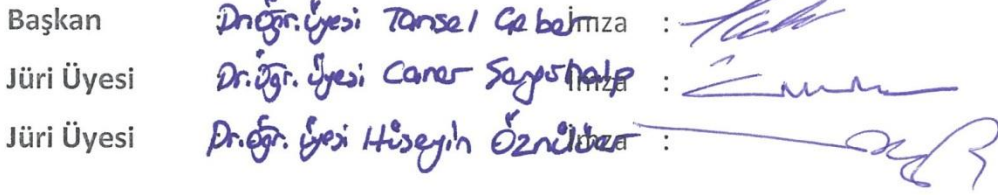 Başkan Dr.Öğr. Üyesi Tansel Geber İmza :
Jüri Üyesi Dr.Öğr. Üyesi Caner İmza :
Jüri Üyesi Dr.Öğr. Üyesi Hüseyin İmza :